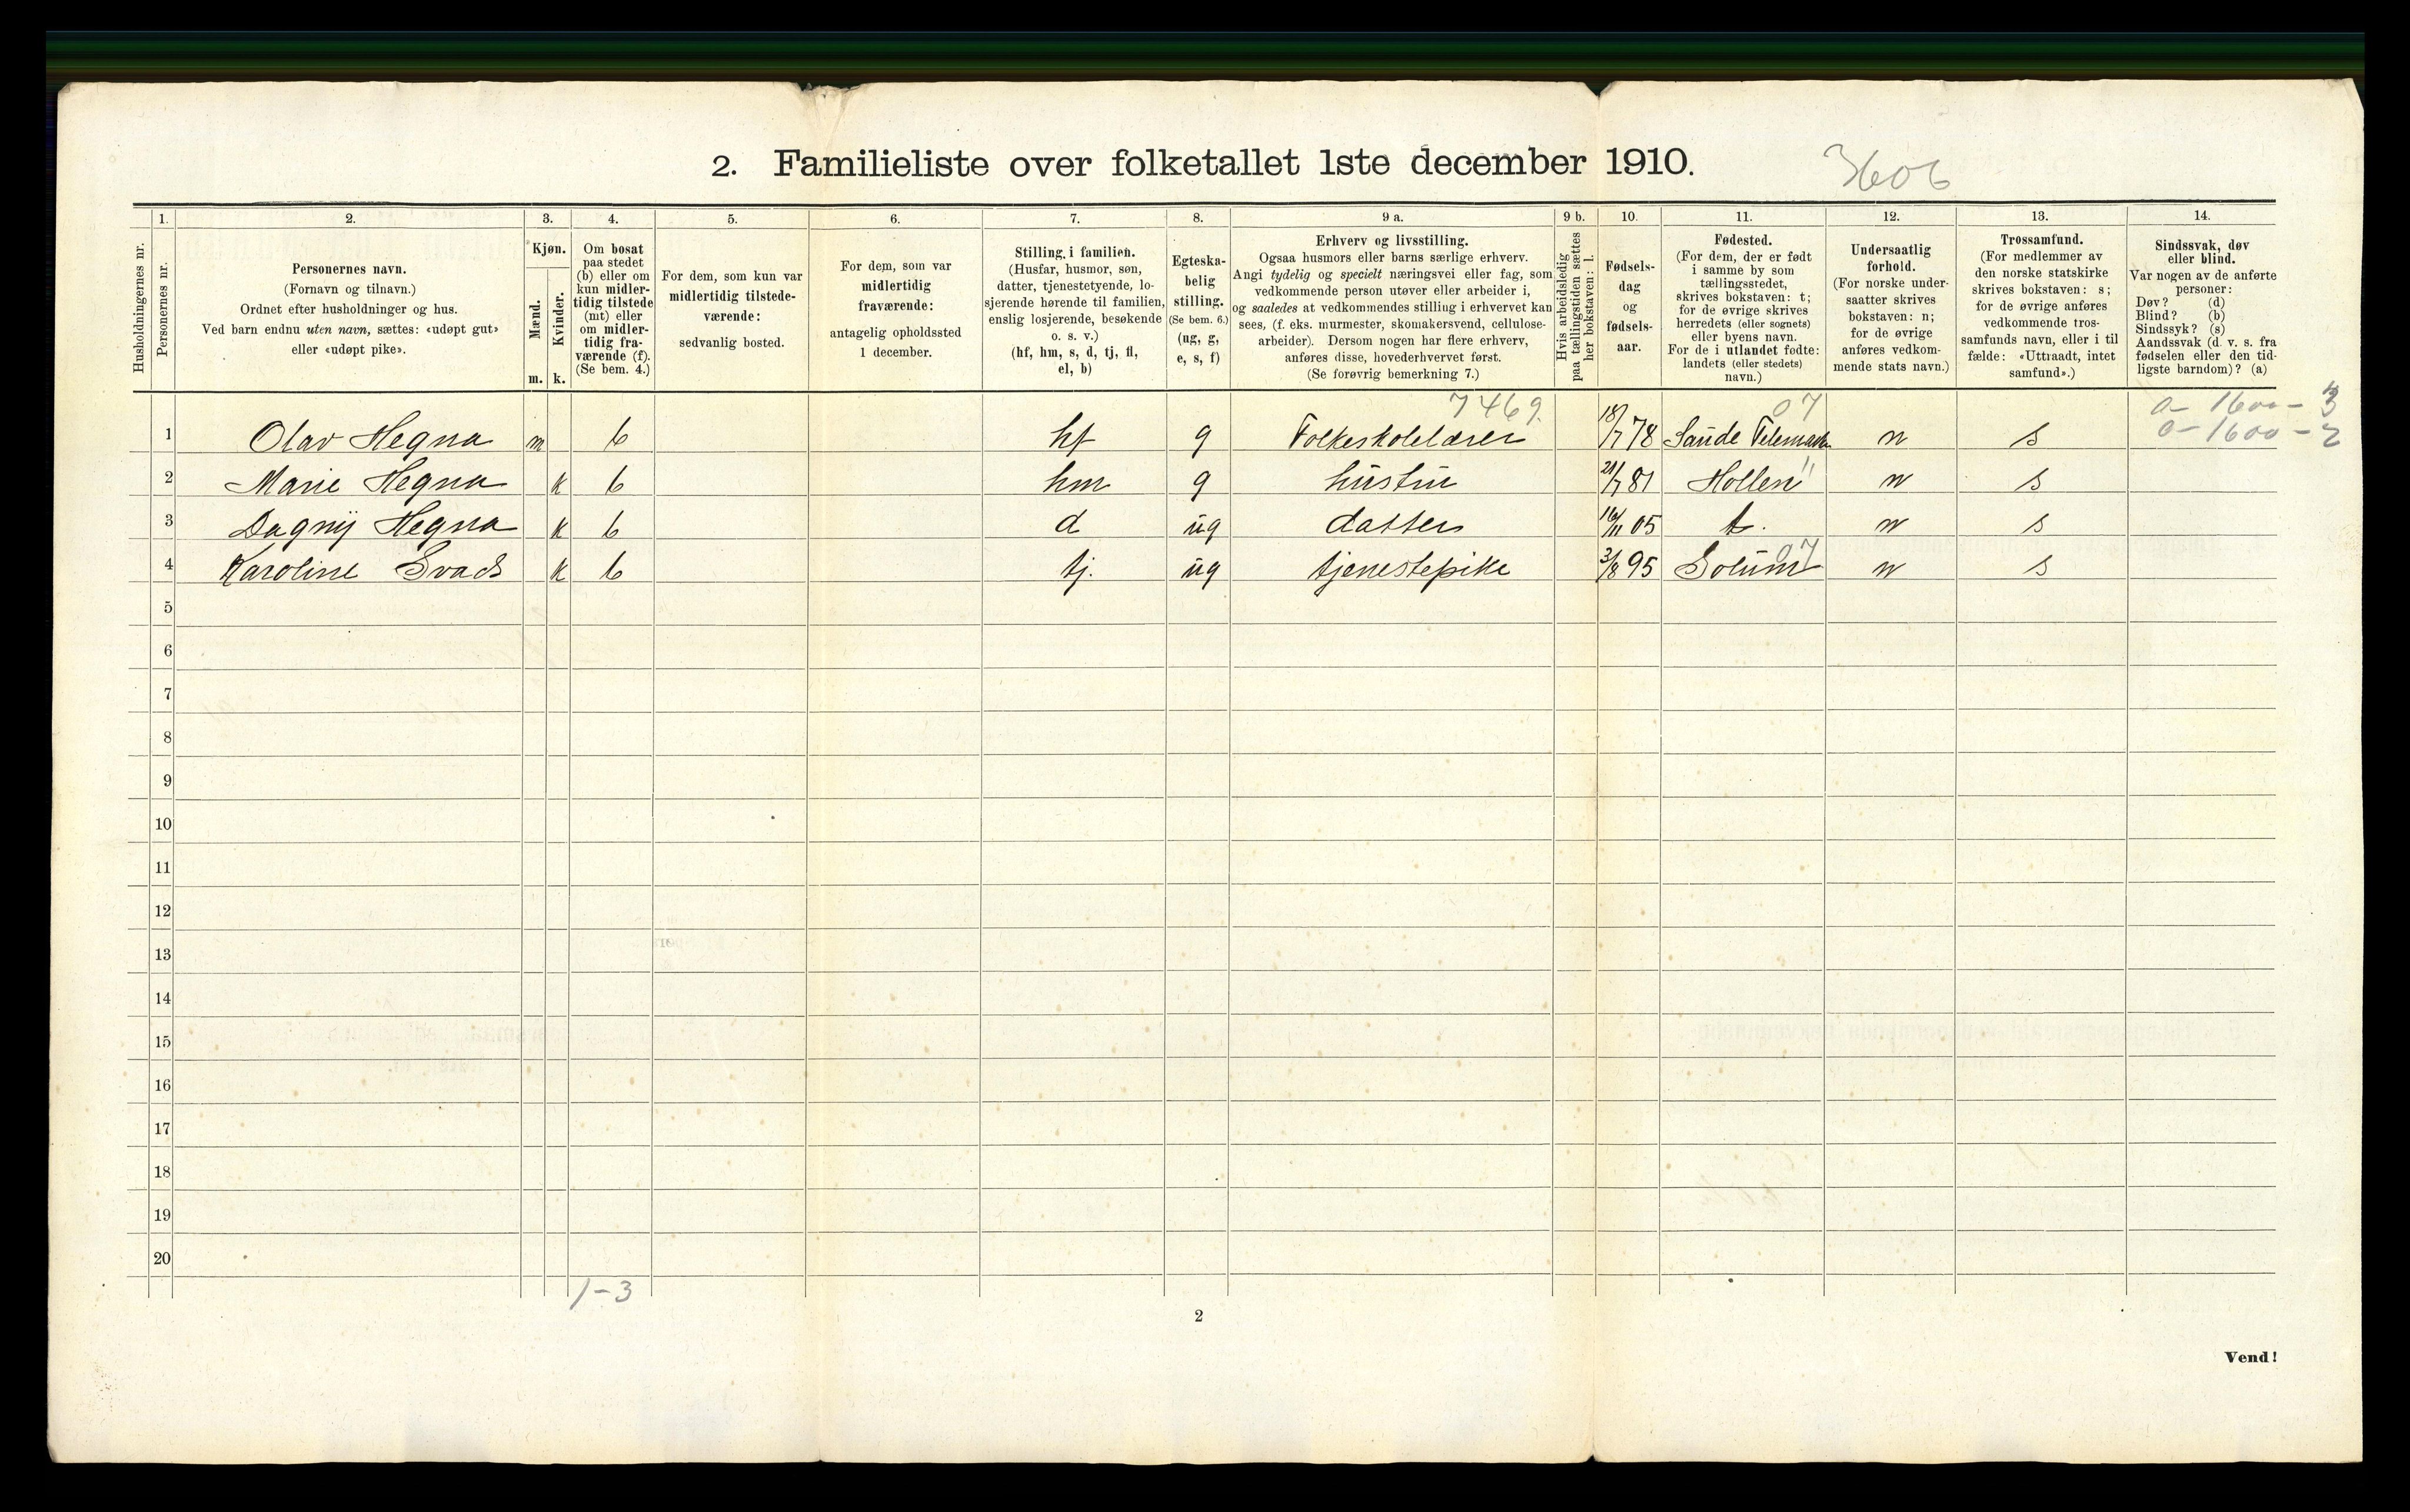 2. Familieliste over folketallet 1ste december 1910.
3606
1.
2.
3.
4.
5.
6.
7.
8.
9 a.
9 b.
10.
11.
12.
13.
14.
Husholdningernes nr.
Personernes nr.
Personernes navn.
(Fornavn og tilnavn.)
Ordnet efter husholdninger og hus.
Ved barn endnu uten navn, sættes: «udøpt gut»
eller «udøpt pike».
Kjøn.
Mænd.
Kvinder.
m. k.
Om bosat
paa stedet
(b) eller om
kun midler-
tidig tilstede
(mt) eller
om midler-
tidig fra-
værende (f).
(Se bem. 4.)
For dem, som kun var
midlertidig tilstede-
værende:
sedvanlig bosted.
For dem, som var
midlertidig
fraværende:
antagelig opholdssted
1 december.
Stilling i familien.
(Husfar, husmor, søn,
datter, tjenestetyende, lo-
sjerende hørende til familien,
enslig losjerende, besøkende
o. s. v.)
(hf, hm, s, d, tj, fl,
el, b)
Egteska-
belig
stilling.
(Se bem. 6.)
(ug, g,
e, s, f)
Erhverv og livsstilling.
Ogsaa husmors eller barns særlige erhverv.
Angi tydelig og specielt næringsvei eller fag, som
vedkommende person utøver eller arbeider i,
og saaledes at vedkommendes stilling i erhvervet kan
sees, (f. eks. murmester, skomakersvend, cellulose-
arbeider). Dersom nogen har flere erhverv,
anføres disse, hovederhvervet først.
(Se forøvrig bemerkning 7.)
Hvis arbeidsledig
paa tællingstiden sættes
her bokstaven: l.
Fødsels-
dag
og
fødsels-
aar.
Fødested.
(For dem, der er født
i samme by som
tællingsstedet,
skrives bokstaven: t;
for de øvrige skrives
herredets (eller sognets)
eller byens navn.
For de i utlandet fødte:
landets (eller stedets)
navn.)
Undersaatlig
forhold.
(For norske under-
saatter skrives
bokstaven: n;
for de øvrige
anføres vedkom-
mende stats navn.)
Trossamfund.
(For medlemmer av
den norske statskirke
skrives bokstaven: s;
for de øvrige anføres
vedkommende tros-
samfunds navn, eller i til
fælde: «Uttraadt, intet
samfund».)
Sindssvak, døv
eller blind.
Var nogen av de anførte
personer:
Døv? (d)
Blind? (b)
Sindssyk? (s)
Aandssvak (d. v. s. fra
fødselen eller den tid-
ligste barndom)? (a)
7469. 07 0-1600-3
1 Olav Hegna m b hf g Folkeskolelærer 18/7 78 Saude Telemark n s 0-1600-2
2 Marie Hegna k b hm g hustru 21/7 81 Hollen " n s
3 Dagny Hegna k b d ug datter 16/11 05 t. n s
07
4 Karoline Svads k b tj. ug tjenestepike 3/8 95 Solum n s
5
6
7
8
9
10
11
12
13
14
15
16
17
18
19
20
1-3
2
Vend!